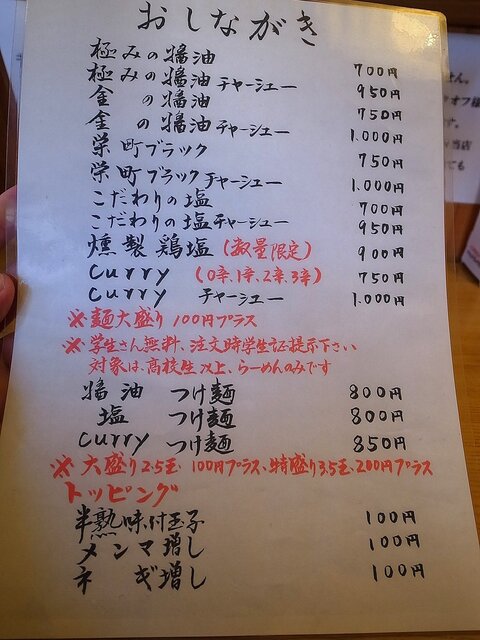 おしながき
極みの醤油 700円
極みの醤油チャーシュー 950円
金の醤油 750円
金の醤油チャーシュー 1.000円
栄町ブラック 750円
栄町ブラックチャーシュー 1.000円
こだわりの塩 700円
こだわりの塩チャーシュー 950円
燻製鶏塩(数量限定) 900円
curry (0辛、1辛、2辛、3辛) 750円
curry チャーシュー 1.000円
※麺大盛り 100円プラス
※学生さん無料、注文時学生証提示下さい
対象は、高校生以上、らーめんのみです
醤油 つけ麺 800円
塩 つけ麺 800円
curry つけ麺 850円
※大盛り2.5玉、100円プラス、特盛り3.5玉、200円プラス
トッピング
半熟味付玉子 100円
メンマ増し 100円
ネギ増し 100円
せん。
オフ様
す。
当店
でも